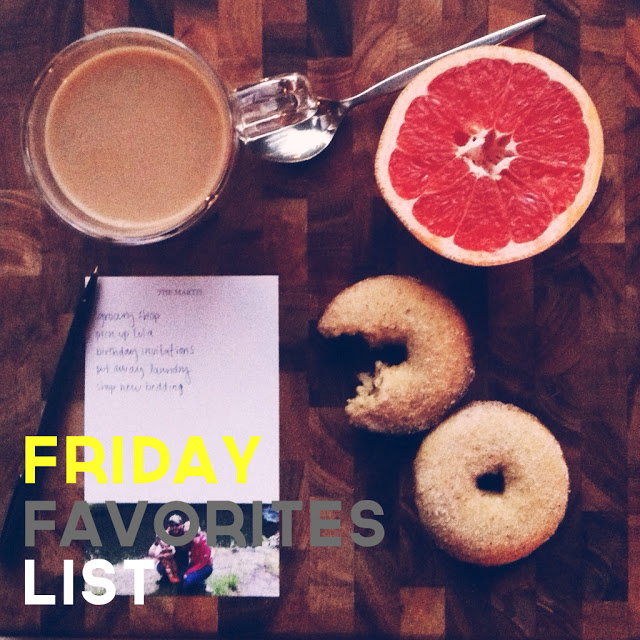 THE MARTIS
grocery shop
pick up Lola
birthday invitations
put away laundry
shop new bedding
FRIDAY
FAVORITES
LIST